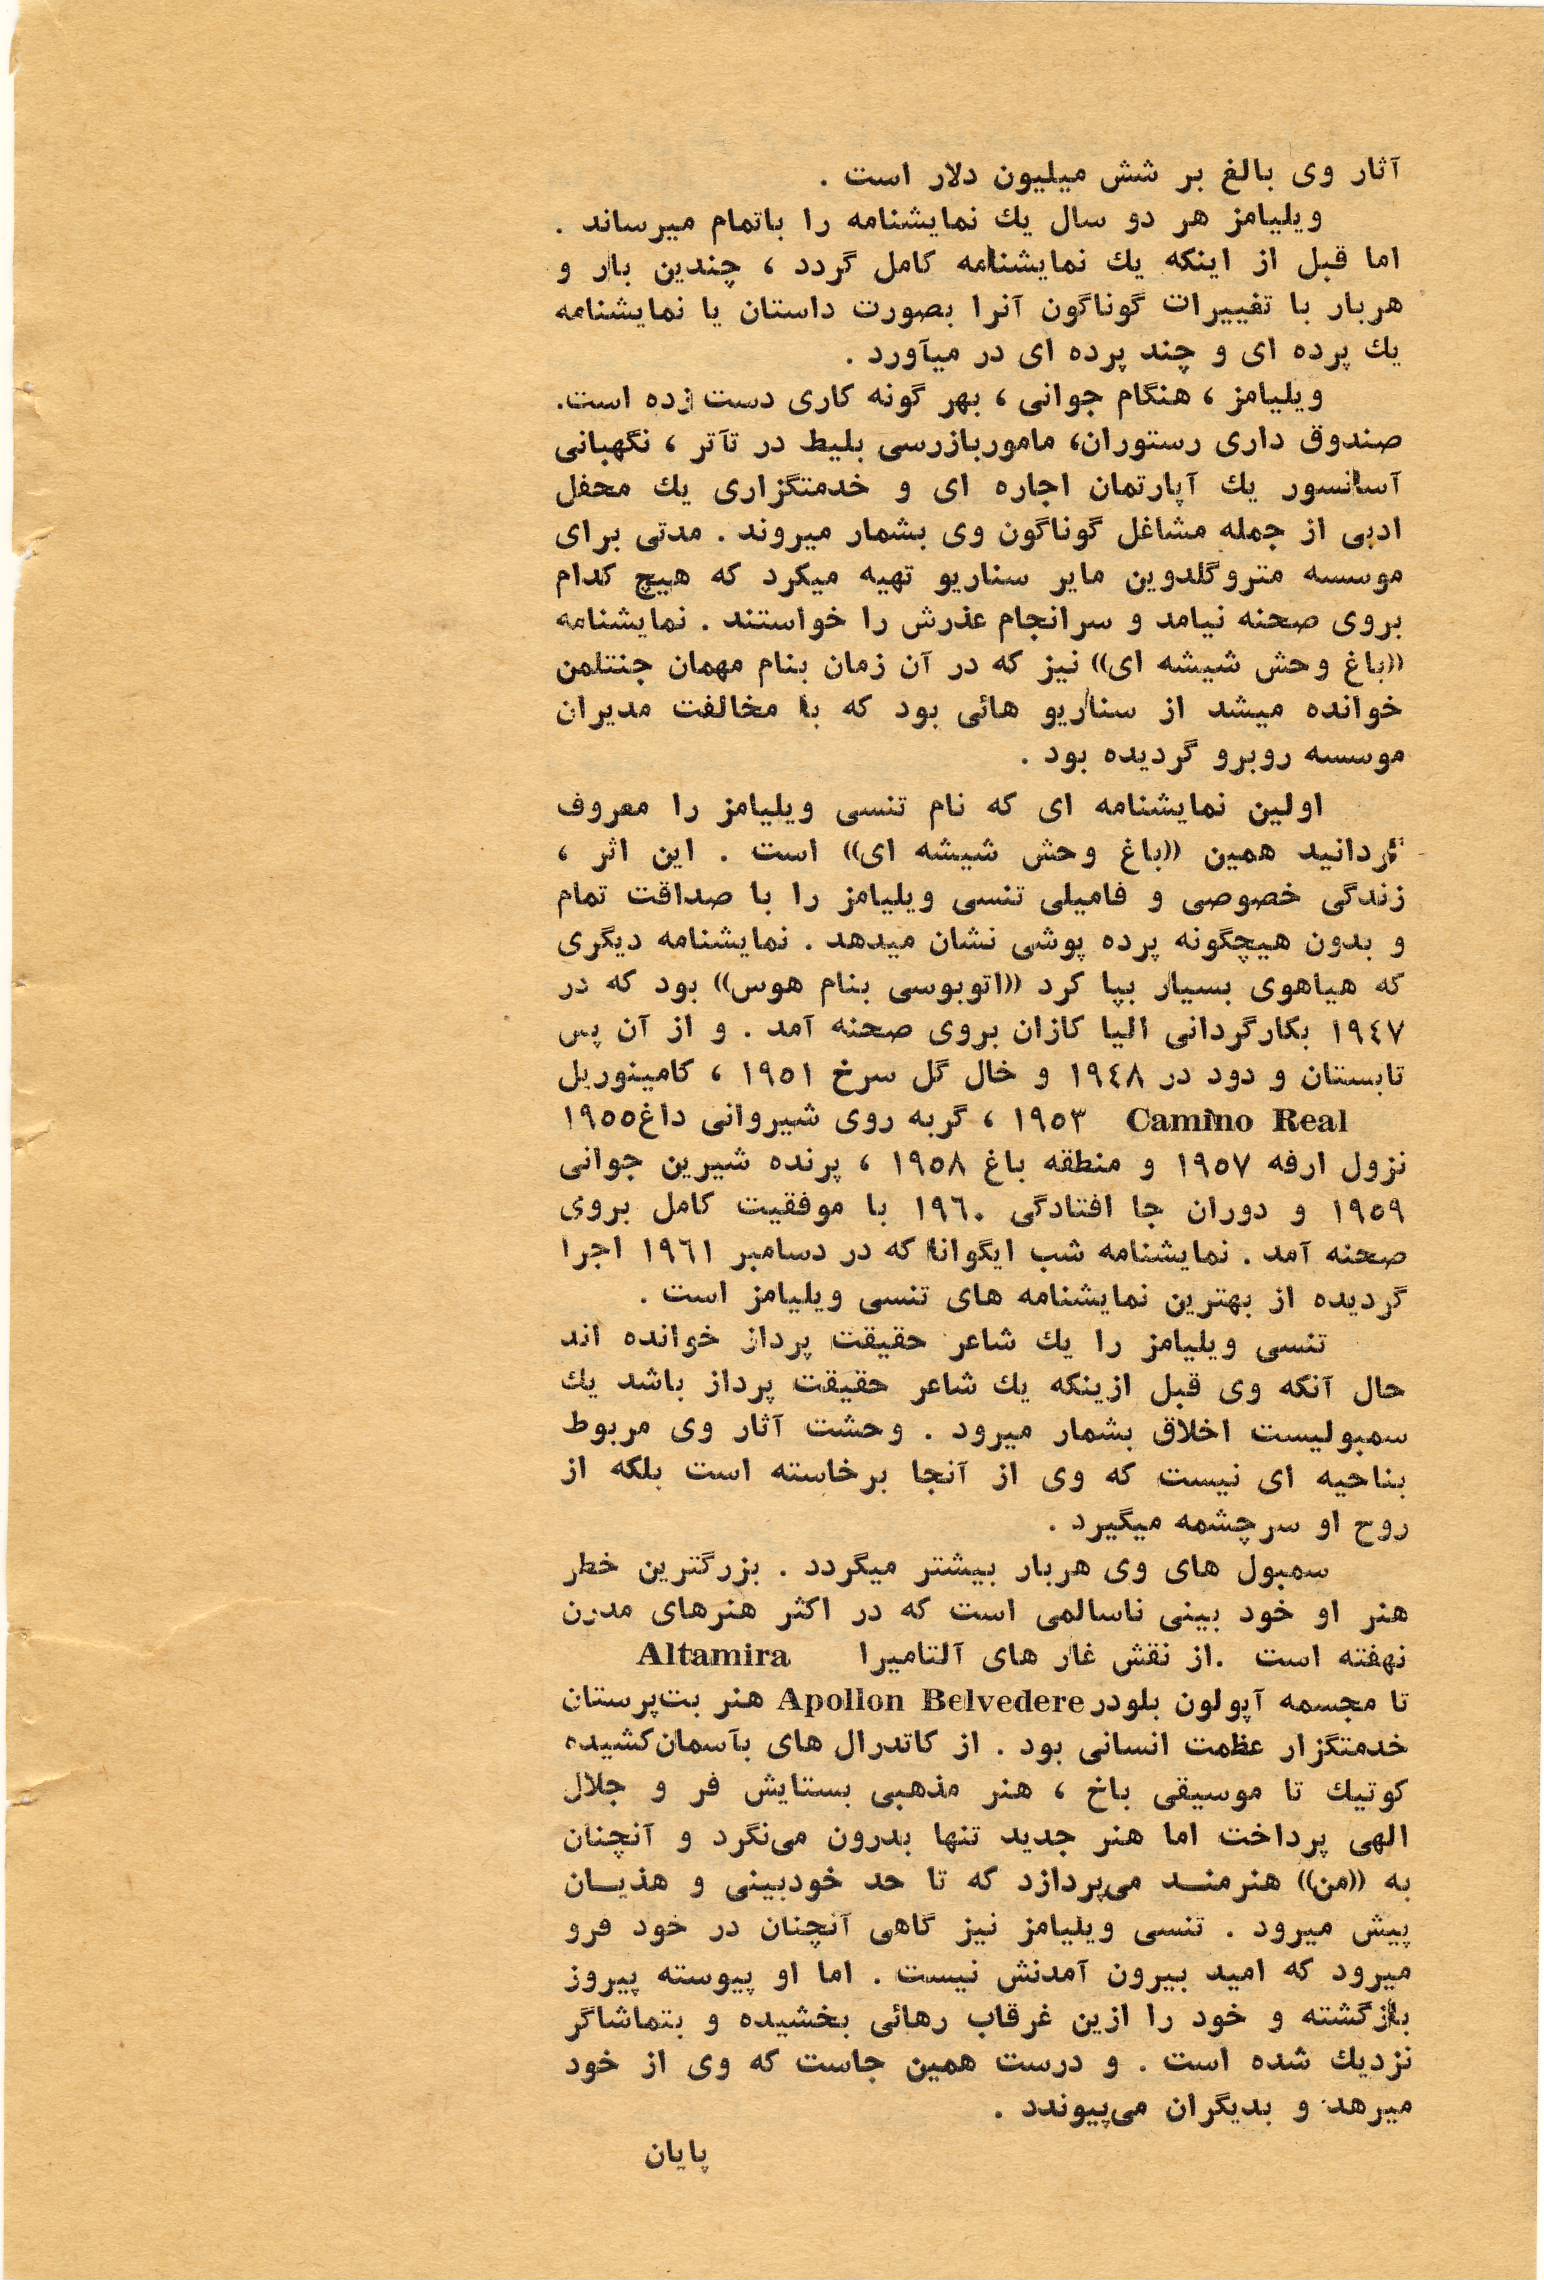 آثار وی بالغ بر شش میلیون دلار است .
ویلیامز هر دو سال یك نمایشنامه را باتمام میرساند .
اما قبل از اینکه یك نمایشنامه کامل گردد ، چندین بار و
هربار با تغییرات گوناگون آنرا بصورت داستان یا نمایشنامه
یك پرده ای و چند پرده ای در میآورد .
ویلیامز ، هنگام جوانی ، بهر گونه کاری دست زده است.
صندوق داری رستوران، ماموربازرسی بلیط در تآتر ، نگهبانی
آسانسور یك آپارتمان اجاره ای و خدمتگزاری یك محفل
ادبی از جمله مشاغل گوناگون وی بشمار میروند . مدتی برای
موسسه متروگلدوین مایر سناریو تهیه میکرد که هیچ کدام
بروی صحنه نیامد و سرانجام عذرش را خواستند . نمایشنامه
((باغ وحش شیشه ای)) نیز که در آن زمان بنام مهمان جنتلمن
خوانده میشد از سناریو هائی بود که با مخالفت مدیران
موسسه روبرو گردیده بود .
اولین نمایشنامه ای که نام تنسی ویلیامز را معروف
گردانید همین ((باغ وحش شیشه ای)) است . این اثر ،
زندگی خصوصی و فامیلی تنسی ویلیامز را با صداقت تمام
و بدون هیچگونه پرده پوشی نشان میدهد . نمایشنامه دیگری
که هیاهوی بسیار بپا کرد ((اتوبوسی بنام هوس)) بود که در
١٩٤٧ بکارگردانی الیا کازان بروی صحنه آمد . و از آن پس
تابستان و دود در ١٩٤٨ و خال گل سرخ ١٩٥١ ، کامینوریل
Camino Real ١٩٥٣ ، گربه روی شیروانی داغ١٩٥٥
نزول ارفه ١٩٥٧ و منطقه باغ ١٩٥٨ ، پرنده شیرین جوانی
١٩٥٩ و دوران جا افتادگی ١٩٦٠ با موفقیت کامل بروی
صحنه آمد . نمایشنامه شب ایگوانا که در دسامبر ١٩٦١ اجرا
گردیده از بهترین نمایشنامه های تنسی ویلیامز است .
تنسی ویلیامز را یك شاعر حقیقت پرداز خوانده اند
حال آنکه وی قبل ازینکه یك شاعر حقیقت پرداز باشد یك
سمبولیست اخلاق بشمار میرود . وحشت آثار وی مربوط
بناحیه ای نیست که وی از آنجا برخاسته است بلکه از
روح او سرچشمه میگیرد .
سمبول های وی هربار بیشتر میگردد . بزرگترین خطر
هنر او خود بینی ناسالمی است که در اکثر هنرهای مدرن
نهفته است .از نقش غار های آلتامیرا Altamira
تا مجسمه آپولون بلودر Apollon Belvedere هنر بت‌پرستان
خدمتگزار عظمت انسانی بود . از کاتدرال های بآسمان‌کشیده
کوتیك تا موسیقی باخ ، هنر مذهبی بستایش فر و جلال
الهی پرداخت اما هنر جدید تنها بدرون می‌نگرد و آنچنان
به ((من)) هنرمنـد می‌پردازد که تا حد خودبینی و هذیـان
پیش میرود . تنسی ویلیامز نیز گاهی آنچنان در خود فرو
میرود که امید بیرون آمدنش نیست . اما او پیوسته پیروز
بازگشته و خود را ازین غرقاب رهائی بخشیده و بتماشاگر
نزدیك شده است . و درست همین جاست که وی از خود
میرهد و بدیگران می‌پیوندد .
پایان